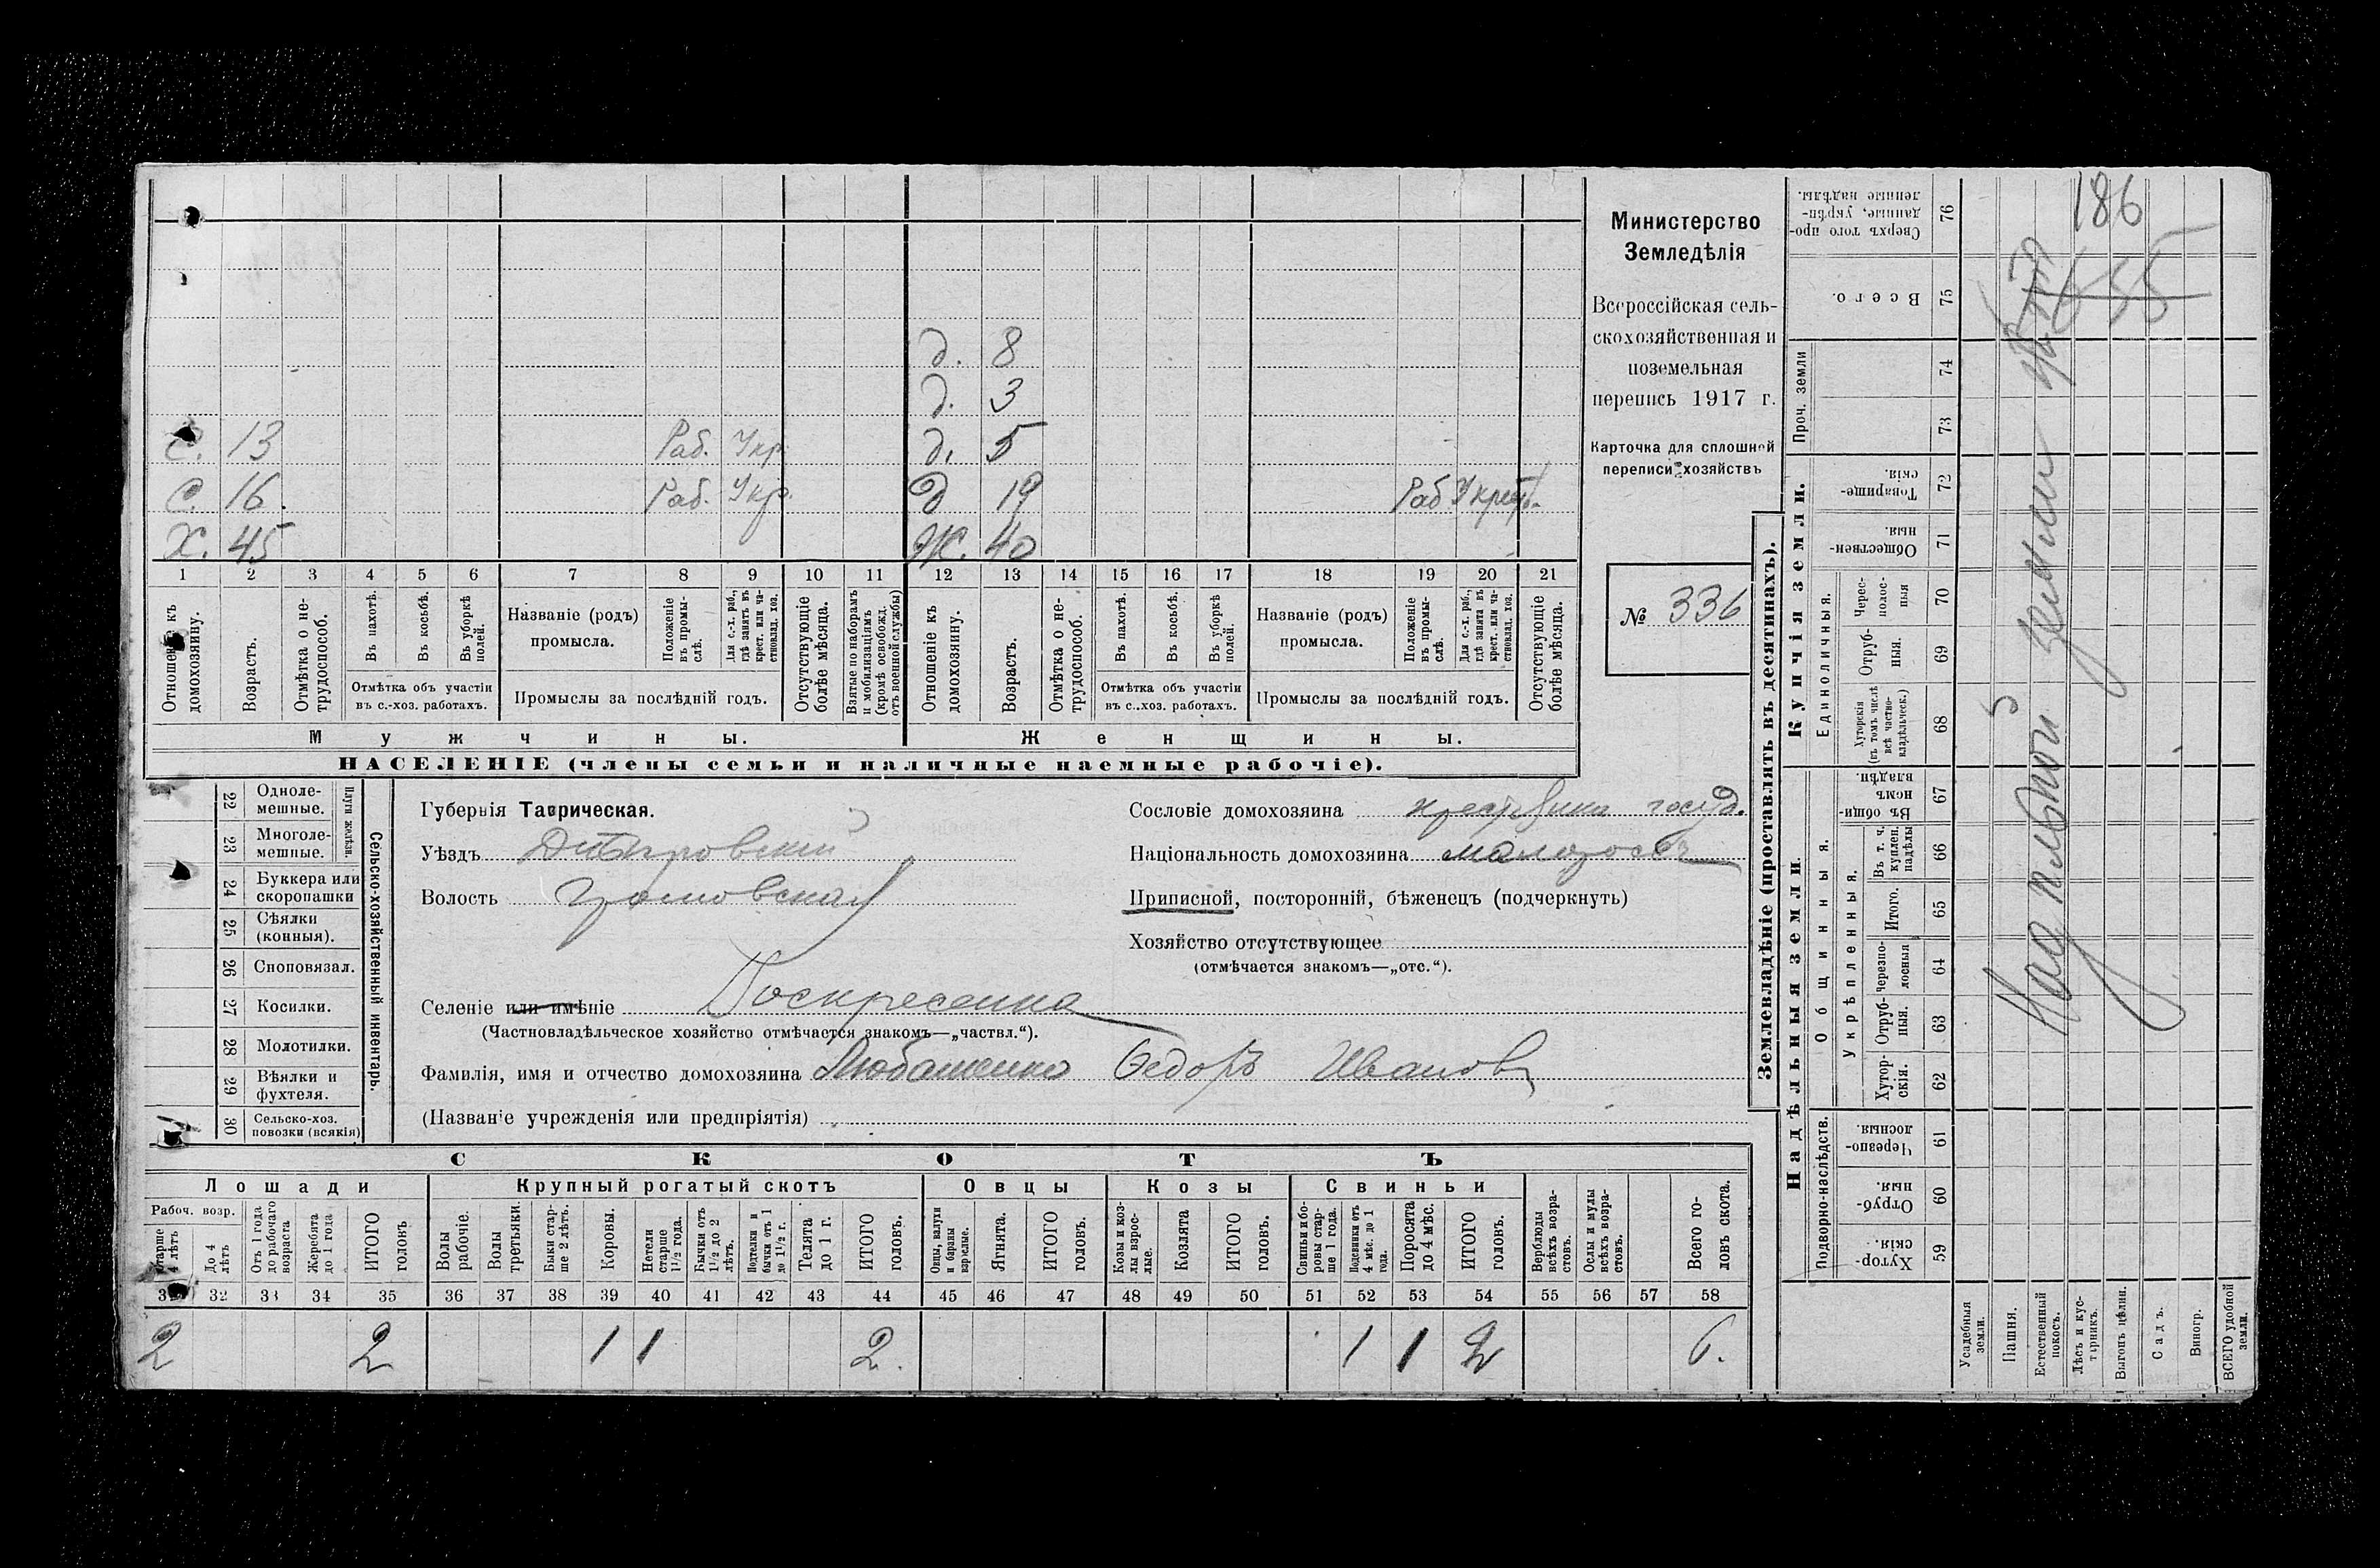 д. 8
д. 3
С. 13 Раб. Укр. д. 5
С. 16. Раб. Укр. д 19 Раб
Х. 45 Ж. 40
1 2 3 4 5 6 7 8 9 10 11 12 13 14 15 16 17 18 19 20 21
Отношеніе къ домохозяину.
Возрастъ.
Отмѣтка о нетрудоспособ.
Въ пахотѣ.
Въ косьбѣ.
Въ уборкѣ полей.
Отмѣтка объ участіи въ с.-хоз. работахъ.
Названіе (родъ) промысла.
Положеніе въ промыслѣ.
Для с.-х. раб., гдѣ занятъ въ крест. или частновлад. хоз.
Промыслы за послѣдній годъ.
Отсутствующіе болѣе мѣсяца.
Взятые по наборамъ и мобилизаціямъ (кромѣ освобожд. отъ военной службы)
Отношеніе къ домохозяину.
Возрастъ.
Отмѣтка о нетрудоспособ.
Въ пахотѣ.
Въ косьбѣ.
Въ уборкѣ полей.
Отмѣтка объ участіи въ с..хоз. работахъ.
Названіе (родъ) промысла.
Положеніе въ промыслѣ.
Для с.-х. раб., гдѣ занята въ крест. или частновлад. хоз.
Промыслы за послѣдній годъ.
Отсутствующіе болѣе мѣсяца.
Мужчины. Женщины.
НАСЕЛЕНІЕ (члены семьи и наличные наемные рабочіе).
Министерство
Земледѣлія
Всероссійская сель-
скохозяйственная и
поземельная
перепись 1917 г.
Карточка для сплошной
переписи хозяйствъ
№ 336
22 Одноле-
мешные.
23 Многоле-
мешные.
Плуги желѣзн.
24 Буккера или
скоропашки
25 Сѣялки
(конныя).
26 Сноповязал.
27 Косилки.
28 Молотилки.
29 Вѣялки и
фухтеля.
30 Сельско-хоз.
повозки (всякія)
Сельско-хозяйственный инвентарь.
Губернія Таврическая.
Уѣздъ Днѣпровскій
Волость Громовская
Селеніе или имѣніе Воскресенка
(Частновладѣльческое хозяйство отмѣчается знакомъ—„частвл.“).
Фамилія, имя и отчество домохозяина Любашенко Ѳедоръ Ивановъ
(Названіе учрежденія или предпріятія)
Сословіе домохозяина госуд.
Національность домохозяина малороссъ
Приписной, посторонній, бѣженецъ (подчеркнуть)
Хозяйство отсутствующее
(отмѣчается знакомъ—„отс.“).
СКОТЪ
Лошади Крупный рогатый скотъ Овцы Козы Свиньи
Рабоч. возр.
Старше 4 лѣтъ
До 4 лѣтъ
Отъ 1 года до рабочаго возраста
Жеребята до 1 года
ИТОГО головъ
Волы рабочіе.
Волы третьяки.
Быки старше 2 лѣтъ.
Коровы.
Нетели старше 1½ года.
Бычки отъ 1½ до 2 лѣтъ.
Подтелки и бычки отъ 1 до 1½ г.
Телята до 1 г.
ИТОГО головъ.
Овцы, валухи и бараны взрослые.
Ягнята.
ИТОГО головъ.
Козы и козлы взрослые.
Козлята
ИТОГО головъ.
Свиньи и боровы старше 1 года.
Подсвинки отъ 4 мѣс. до 1 года.
Поросята до 4 мѣс.
ИТОГО головъ.
Верблюды всѣхъ возрастовъ.
Ослы и мулы всѣхъ возрастовъ.
Всего головъ скота.
31 32 33 34 35 36 37 38 39 40 41 42 43 44 45 46 47 48 49 50 51 52 53 54 55 56 57 58
2 2 1 1 2. 1 1 2 6.
Землевладѣніе (проставлять въ десятинахъ).
Надѣльныя земли Купчія земли.
Подворно-наслѣдств.
Общинныя.
Укрѣпленныя.
Единоличныя.
Проч. земли
Хуторскія. 59
Отрубныя. 60
Черезполосныя. 61
Хуторскія. 62
Отрубныя. 63
Черезполосныя 64
Итого. 65
Въ т. ч. куплен. надѣлы 66
Въ общинномъ владѣн. 67
Хуторскія (въ томъ числѣ всѣ частновладѣльческ.) 68
Отрубныя. 69
Чересполосныя 70
Общественныя. 71
Товарищескія. 72
73
74
Всего. 75
Сверхъ того проданные, укрѣпленные надѣлы. 76
Усадебныя земли.
Пашня.
Естественный покосъ.
Лѣсъ и кустарникъ.
Выгонъ цѣлин.
Садъ.
Виногр.
ВСЕГО удобной земли.
земли
186
55